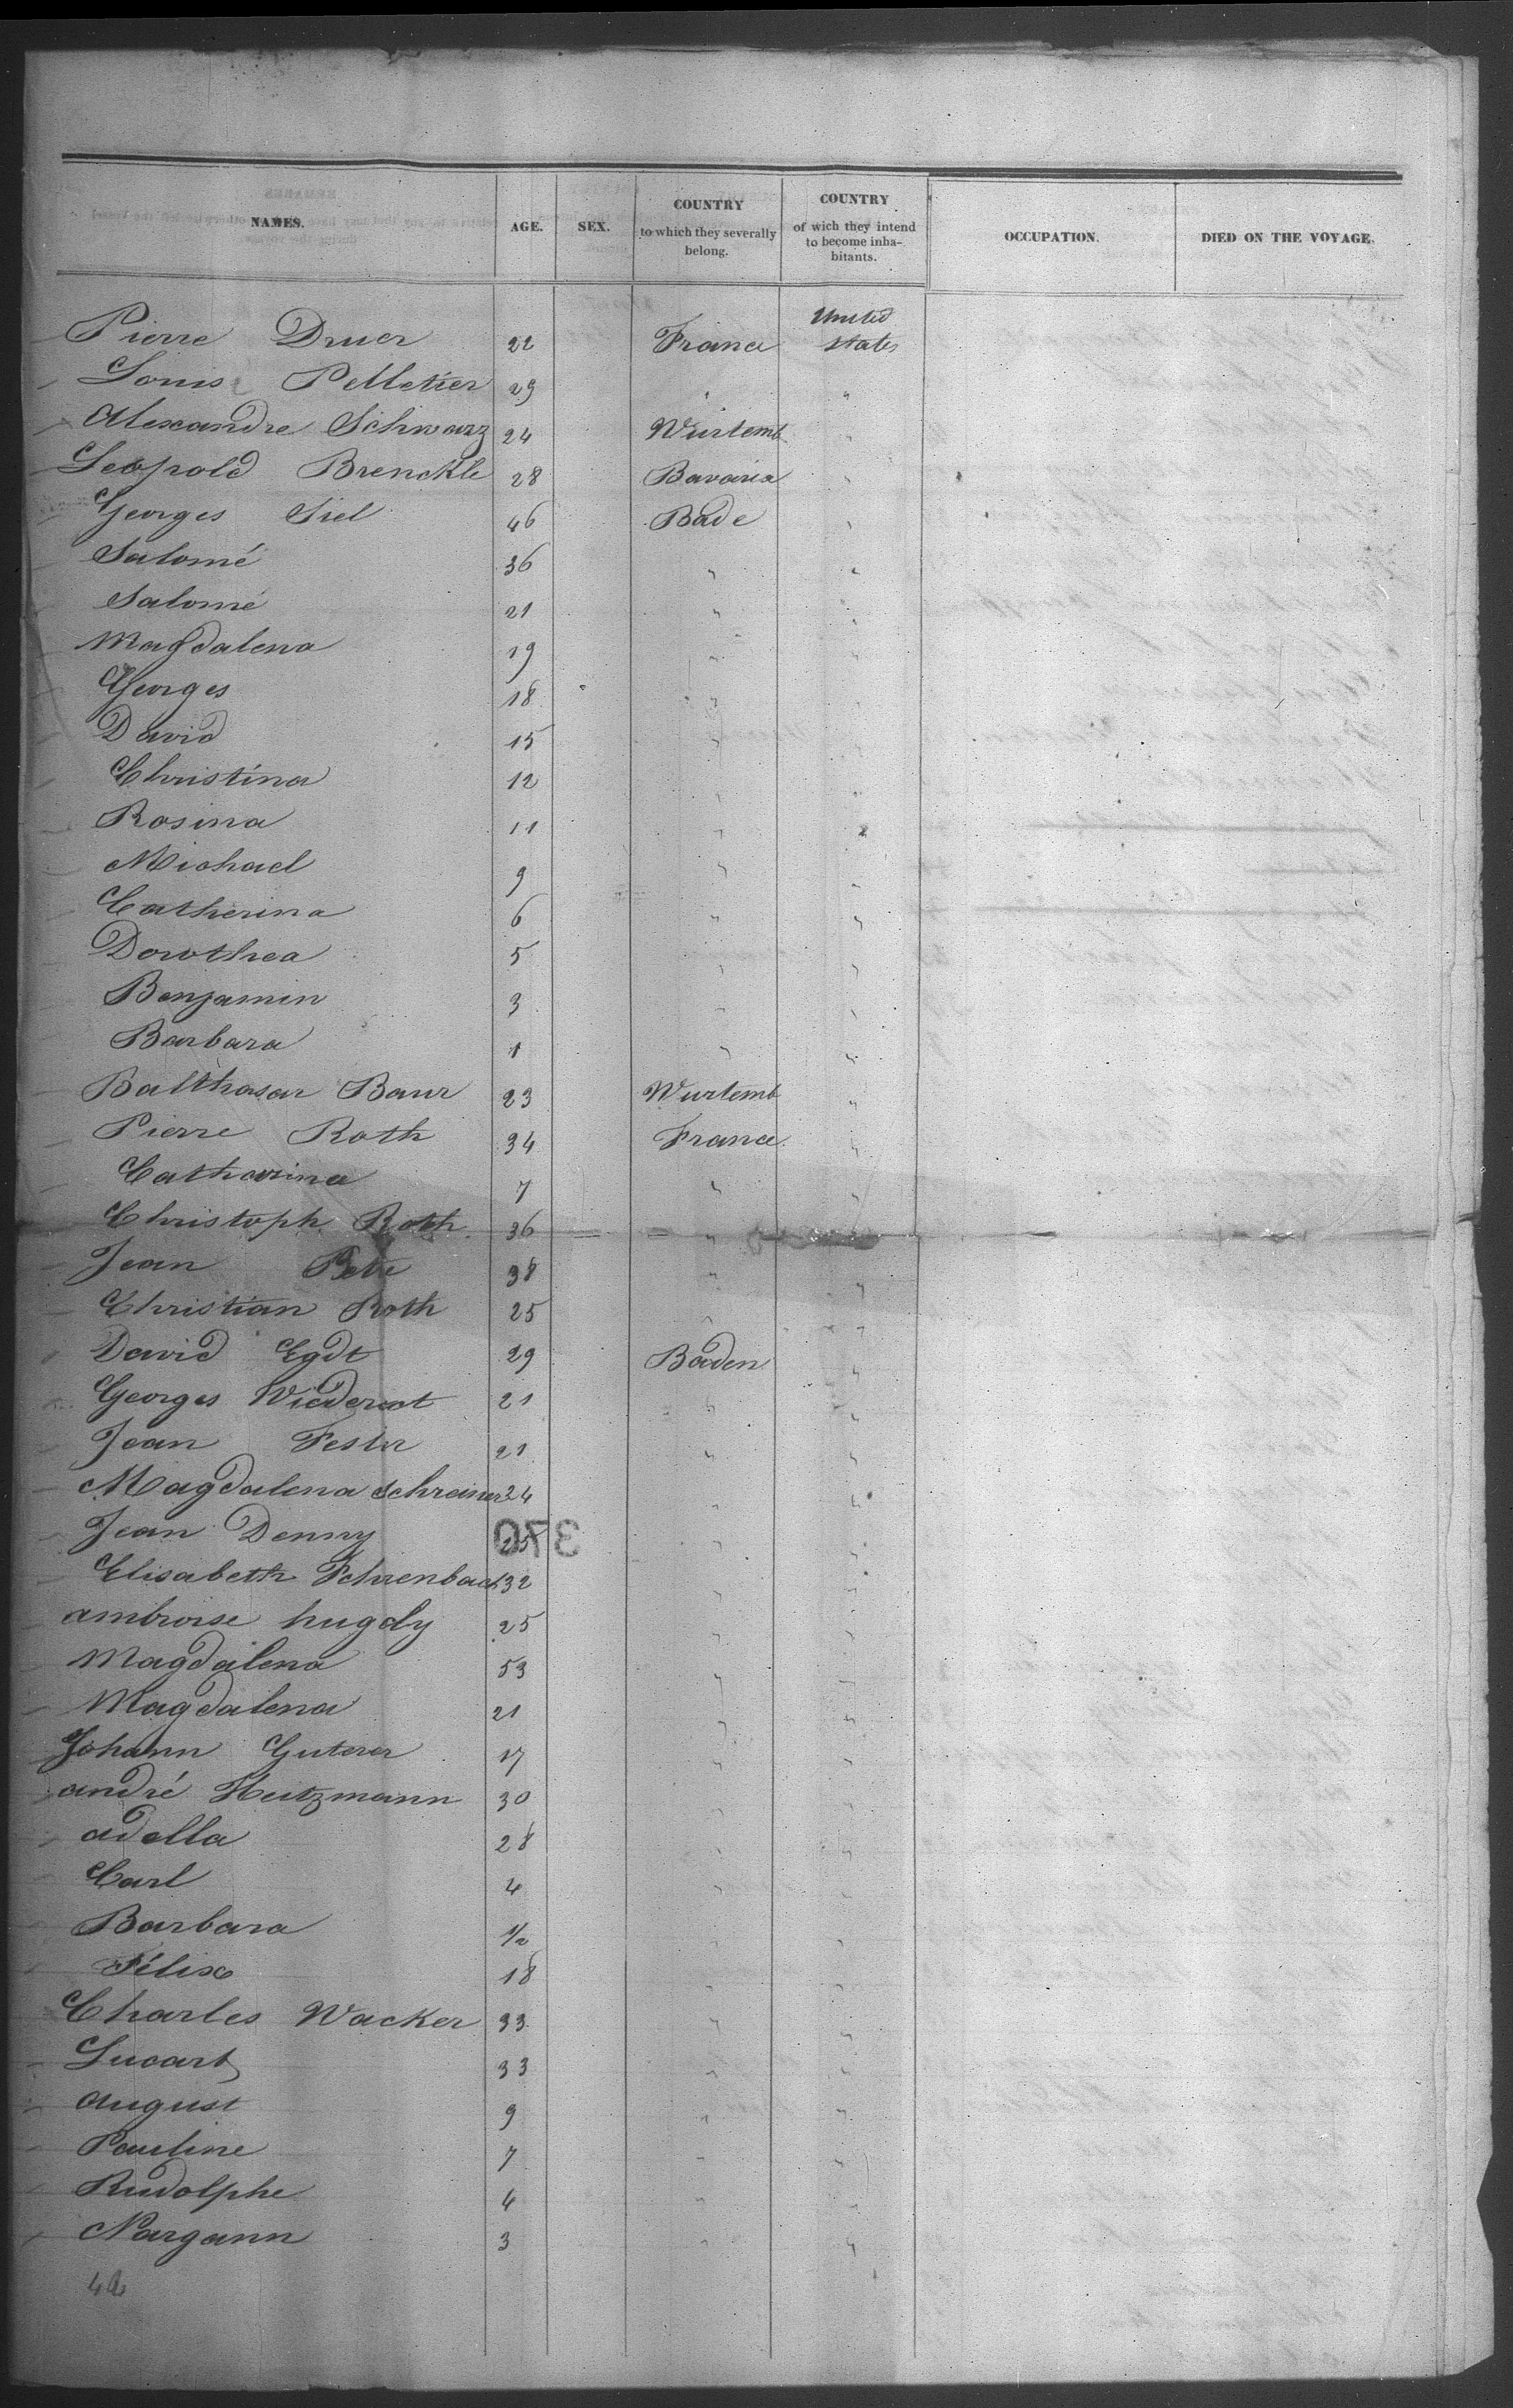 NAMES. AGE. SEX. COUNTRY to which they severally belong. COUNTRY of wich they intend to become inhabitants. OCCUPATION. DIED ON THE VOYAGE.
Pierre Druer 22 France United States
Louis Pelletier 29 " "
Alexandre Schwarz 24 Würtemb "
Leopold Brenckle 28 Bavaria "
Georges Siel 46 Bade "
Salomé 36 " "
Salomé 21 " "
Magdalena 19 " "
Georges 18 " "
David 15 " "
Christina 12 " "
Rosina 11 " "
Michael 9 " "
Catherina 6 " "
Dorothea 5 " "
Benjamin 3 " "
Barbara 1 " "
Balthasar Baur 23 Wurtemb "
Pierre Roth 34 France "
Catharina 7 " "
Christoph Roth 36 " "
Jean 38 " "
Christian Roth 25 " "
David Egdt 29 Baden "
Georges 21 " "
Jean 21 " "
Magdalena Schreiner 24 " "
Jean Denny " "
370
Elisabeth Fehrenbach 32 " "
ambroise hugdy 25 " "
Magdalena 53 " "
Magdalena 21 " "
Johann Guterer 17 " "
andré Heitzmann 30 " "
adella 28 " "
Carl 4 " "
Barbara 1/2 " "
Félix 18 " "
Charles Wacker 33 " "
33 " "
august 9 " "
Pauline 7 " "
Rudolphe 4 " "
Nargann 3 " "